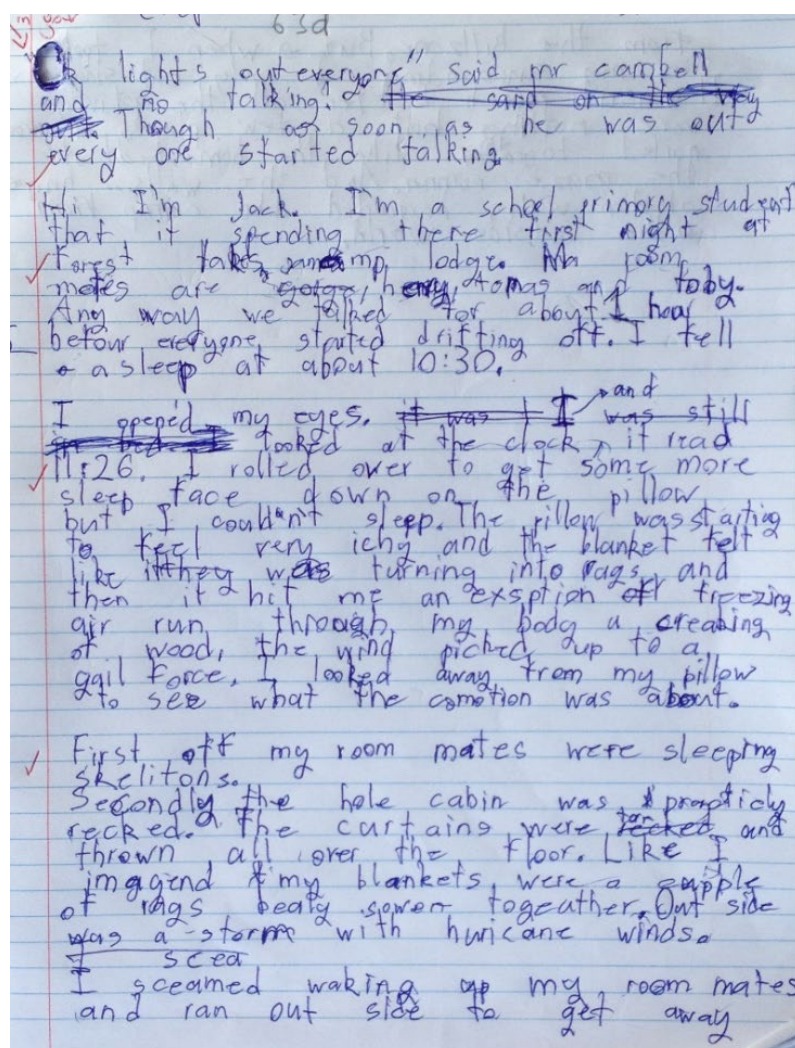 in your
63d
Ok lights out everyone" said mr cambell
and no talking! he said on the way
out. Though as soon as he was out
every one started talking
Hi I'm Jack. I'm a school primory student
that it spending there first night at
forest lakes camp lodge. Ma room
mates are gorge, henry, tomas and toby.
Any way we talked for about 1 hour
befour everyone started drifting off. I fell
a sleep at about 10:30.
I opened my eyes. it was I and was still
in bed looked at the clock, it read
11:26. I rolled over to get some more
sleep face down on the pillow
but I couldn't sleep. The pillow was starting
to feel very ichy and the blanket felt
like if they was turning into rags and
then it hit me an exsption off freezing
air run through my body a creaking
of wood, the wind picked up to a
gail force. I looked away from my pillow
to see what the comotion was about.
First off my room mates were sleeping
skelitons.
Secondly the hole cabin was propticly
recked. The curtains were recked torn and
thrown all over the floor. Like I
imagend my blankets were a cupple
of rags sowen togeather. Out side
was a storm with huricane winds.
I scea
I sceamed waking up my room mates
and ran out side to get away